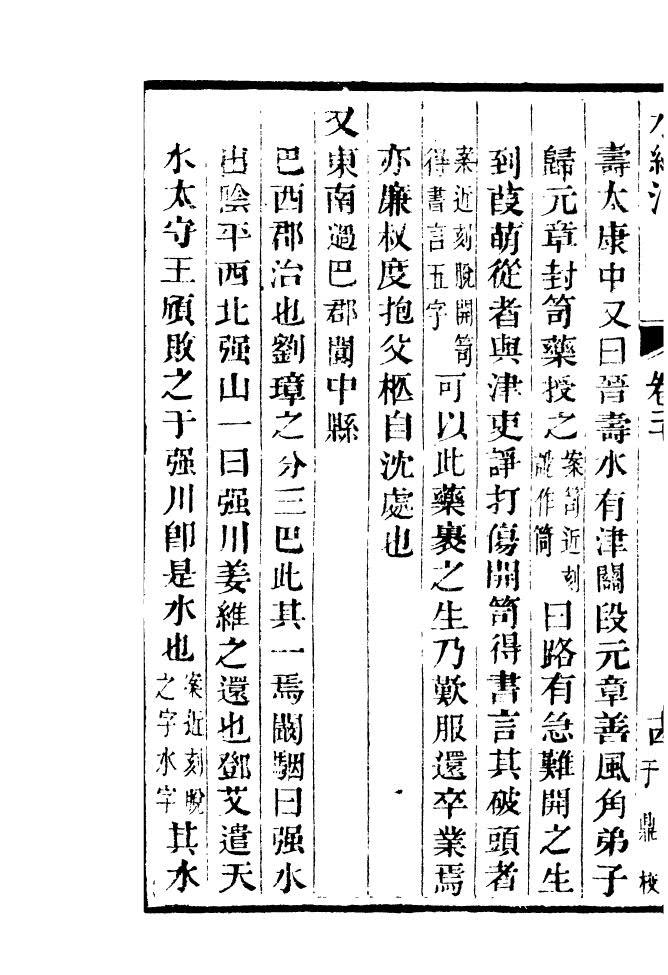 水經注 卷二十 古 于鼎校
壽太康中又曰晉壽水有津關段元章善風角弟子
歸元章封笥藥授之案笥近刻訛作筒曰路有急難開之生
到葭萌從者與津吏諍打傷開笥得書言其破頭者
案近刻脫開笥得書言五字可以此藥裹之生乃歎服還卒業焉
亦廉叔度抱父柩自沈處也
又東南過巴郡閬中縣
巴西郡治也劉璋之分三巴此其一焉闞駰曰强水
出陰平西北强山一曰强川姜維之還也鄧艾遣天
水太守王頎敗之于强川卽是水也案近刻脫之字水字其水